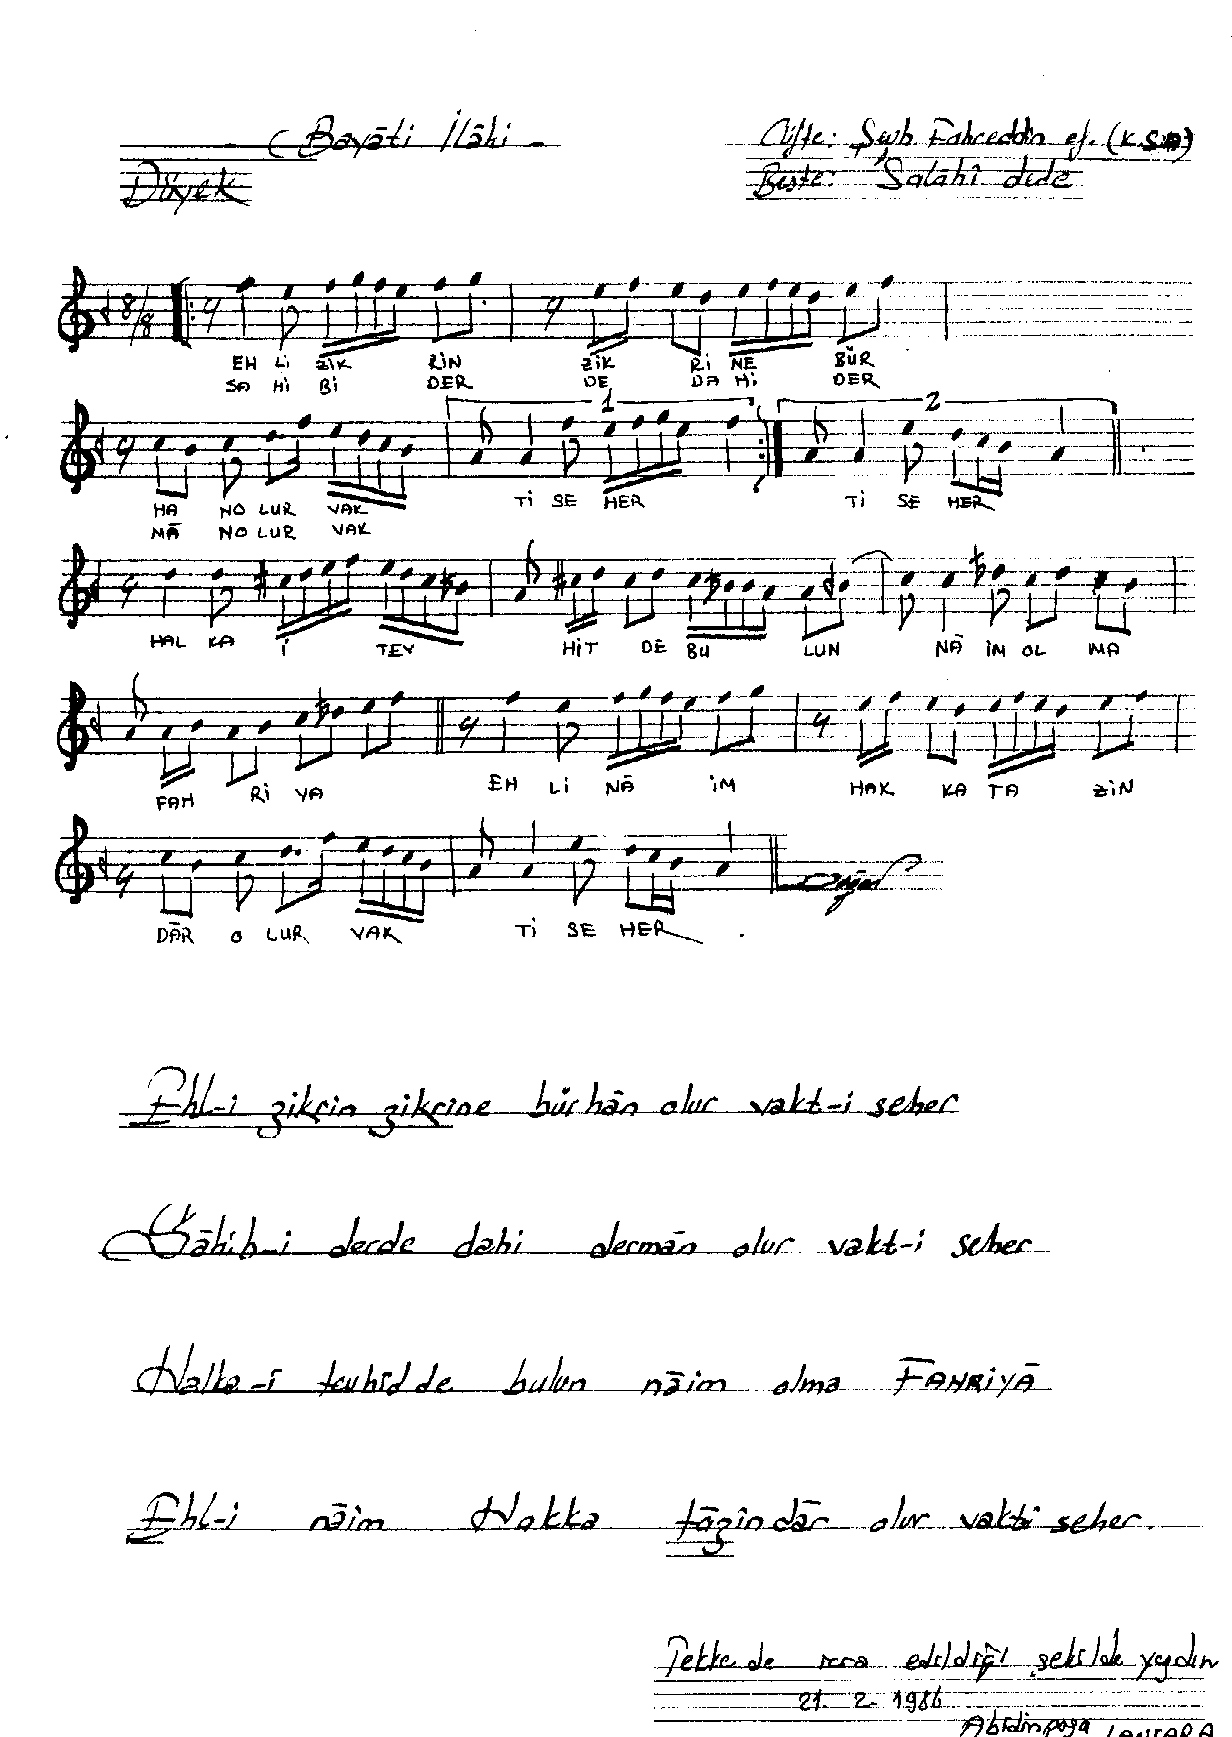 Bayāti İlāhi
Güfte: Şeyh Fahreddin ef. (K.S.A)
Düyek
Beste: Salāhî dede
8/8
EH Lİ ZİK RİN ZİK Rİ NE BÜR
SA Hİ Bİ DER DE DA Hİ DER
1 2
HA NO LUR VAK Tİ SE HER Tİ SE HER
MĀ NO LUR VAK
HAL KA İ TEV HİT DE BU LUN NĀ İM OL MA
FAH Rİ YA EH Lİ NĀ İM HAK KA TA ZİN
DĀR O LUR VAK Tİ SE HER .
Ehl-i zikrin zikrine bürhān olur vakt-i seher
Sāhib-i derde dahi dermān olur vakt-i seher
Halka-î tevhîdde bulun nāim olma FAHRİYĀ
Ehl-i nāim Hakka tāzîndār olur vakti seher.
Tekkede icra edildiği şekilde yazdım
21. 2. 1986
Abidinpaşa / ANKARA